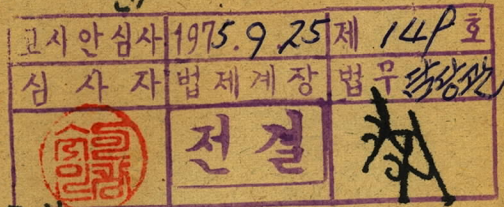 고시안심사 1975.9.25 제 149 호
심사자 법제계장 법무담당관
전결